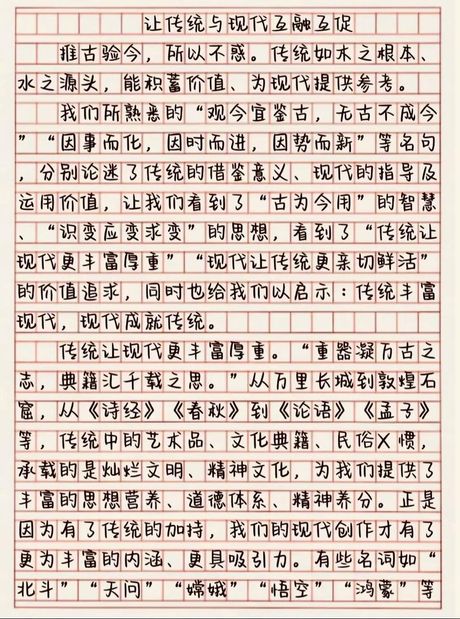 让传统与现代互融互促
推古验今，所以不惑。传统如木之根本、
水之源头，能积蓄价值、为现代提供参考。
我们所熟悉的“观今宜鉴古，无古不成今
”“因事而化，因时而进，因势而新”等名句
，分别论述了传统的借鉴意义、现代的指导及
运用价值，让我们看到了“古为今用”的智慧
、“识变应变求变”的思想，看到了“传统让
现代更丰富厚重”“现代让传统更亲切鲜活”
的价值追求，同时也给我们以启示：传统丰富
现代，现代成就传统。
传统让现代更丰富厚重。“重器凝万古之
志，典籍汇千载之思。”从万里长城到敦煌石
窟，从《诗经》《春秋》到《论语》《孟子》
等，传统中的艺术品、文化典籍、民俗X惯，
承载的是灿烂文明、精神文化，为我们提供了
丰富的思想营养、道德体系、精神养分。正是
因为有了传统的加持，我们的现代创作才有了
更为丰富的内涵、更具吸引力。有些名词如“
北斗”“天问”“嫦娥”“悟空”“鸿蒙”等